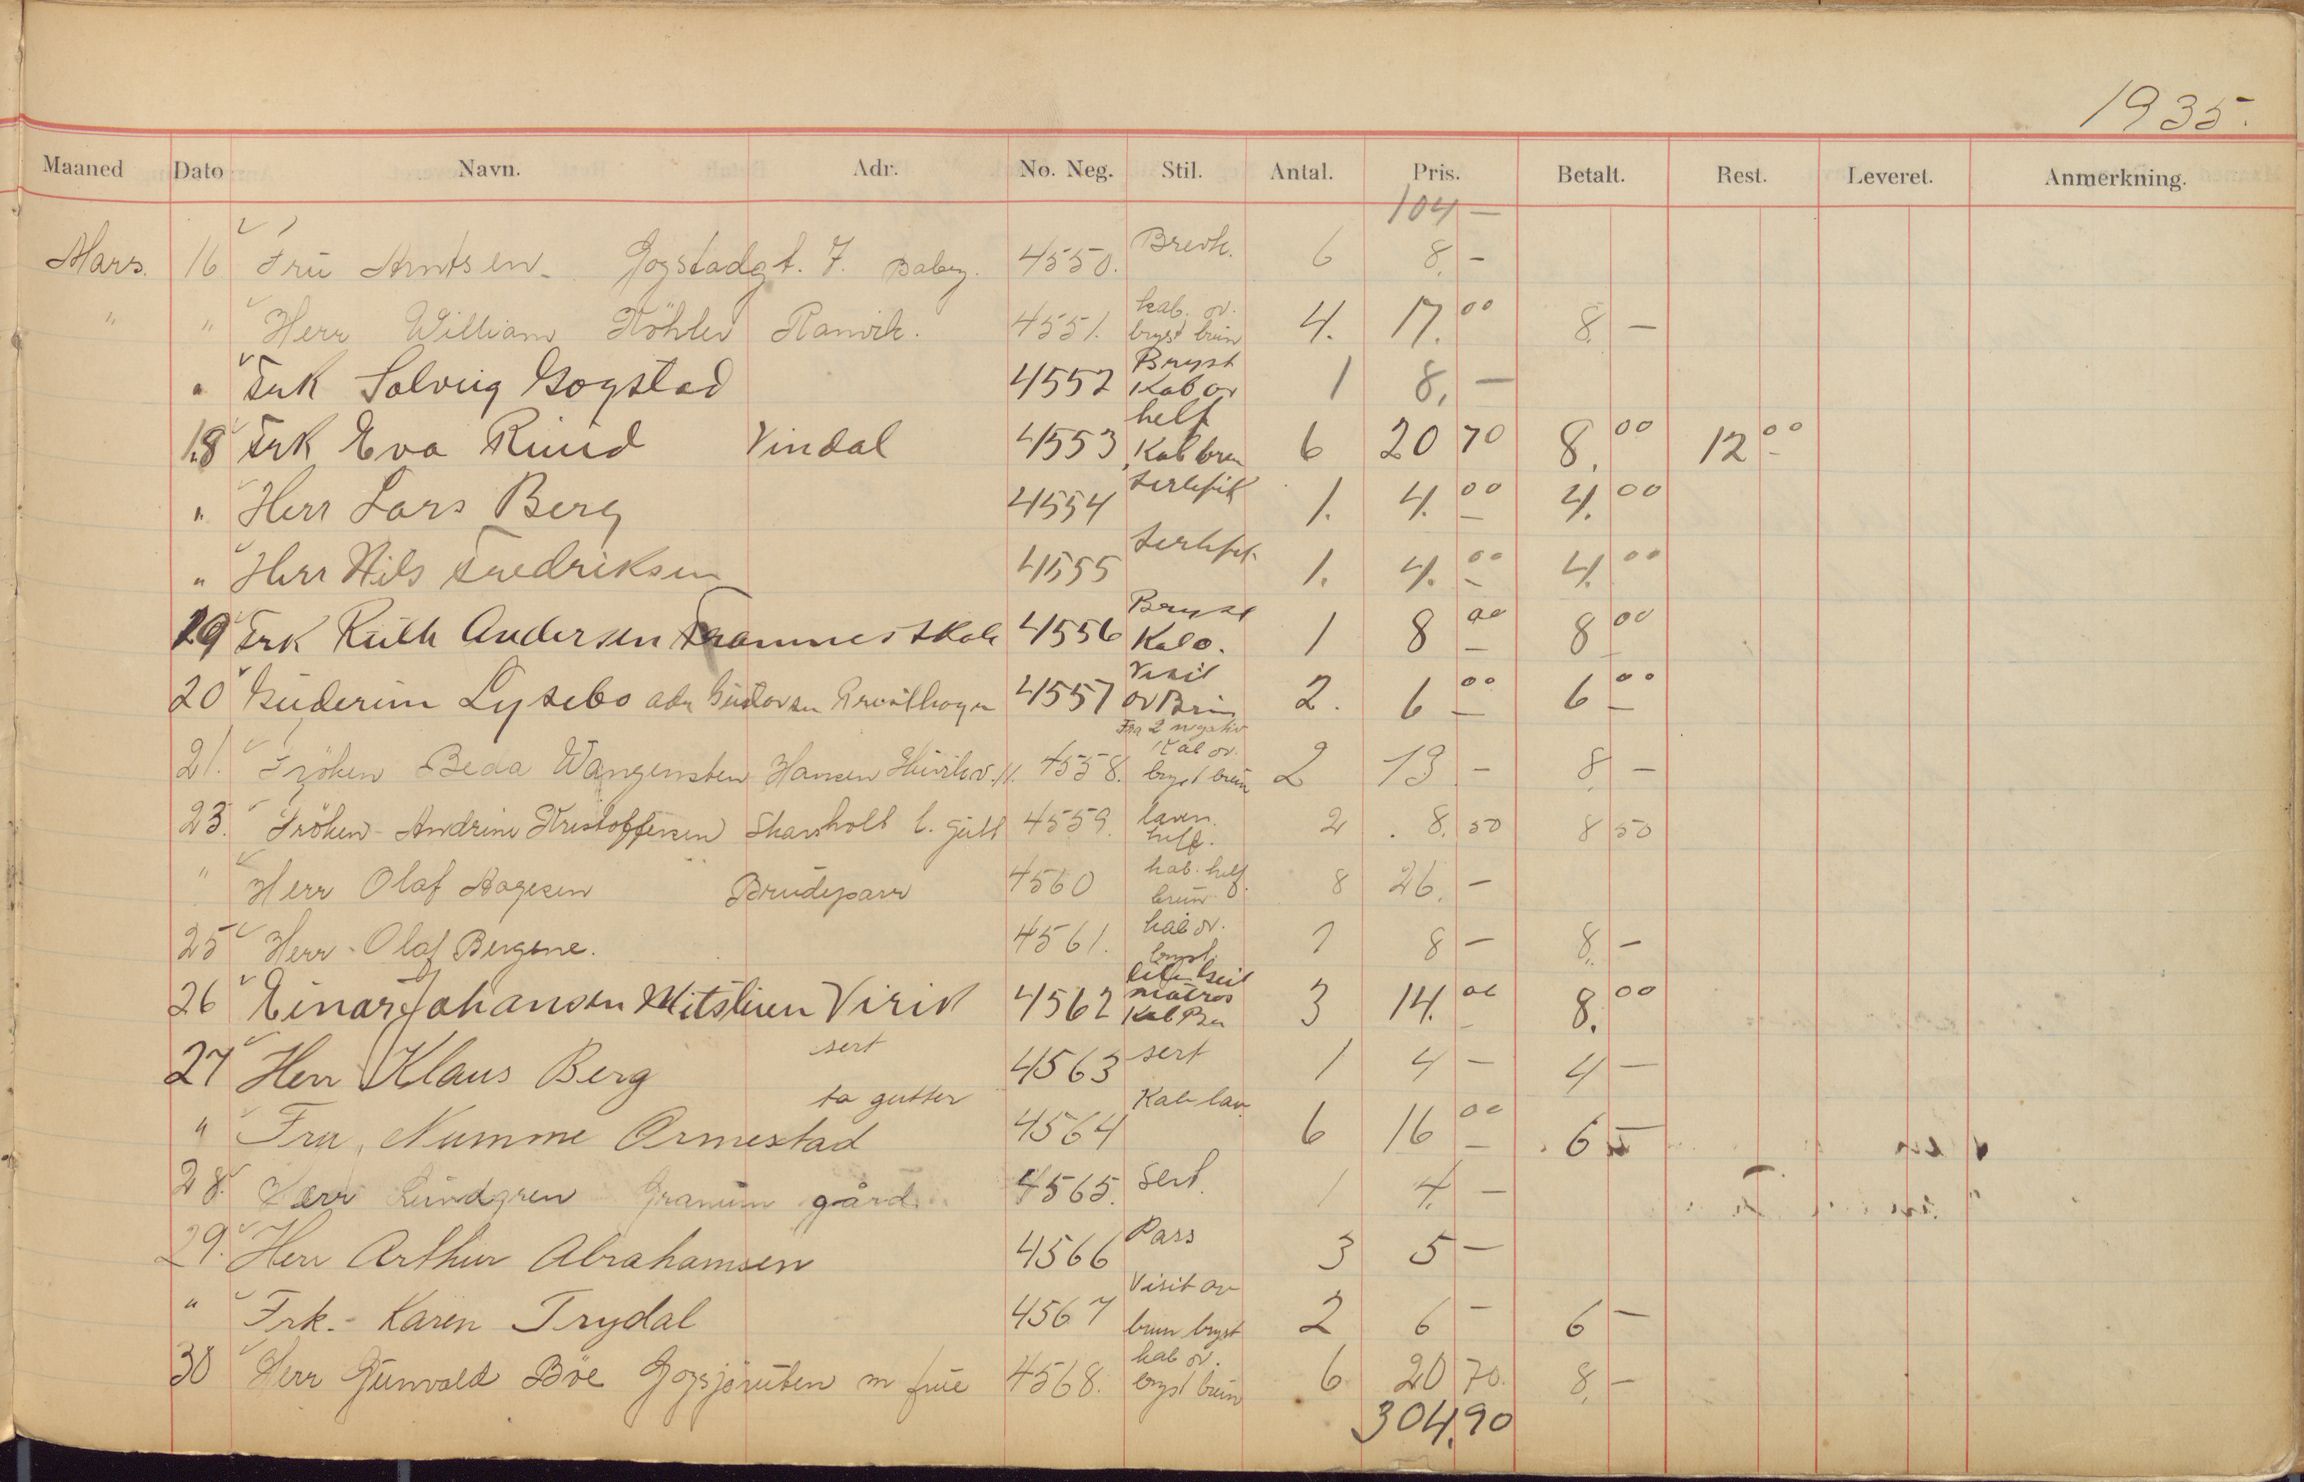 1935.
Maaned Dato Navn. Adr. No. Neg. Stil. Antal. Pris. Betalt. Rest. Leveret. Anmerkning.
104 —
Mars. 16 Frü Arntsen. Gogstadgt. 7. Baby. 4550. Brevk. 6 8. —
" " Herr William Köhler Ranvik. 4551. kab. ov. bryst brün 4. 17.00 8. —
" Frk Solveig Gogstad 4552 Bryst Kab ov 1 8, —
18 Frk Eva Rüud Vindal 4553 helf Kab brun 6 20 70 8.00 12 00
" Herr Lars Berg 4554 sertefik 1. 4.00 4.00
" Herr Nils Fredriksen 4555 sertefik 1. 4.00 4.00
19 Frk Ruth Andersen Framnes skole 4556 Bryst Kab o. 1 8 00 8 00
20 Guderun Lysebo adr Güstavsen 4557 Visit ov Brün 2. 6 00 6 00
21. Fröken Beda Wangensten Hansen 11. 4558. Fra 2 negativ Kab ov. bryst brün 2 13 — 8. —
23. Fröken Andrine Kristoffersen Skarsholt l. gütt 4559. laven. helf. 2 8. 50 8 50
" Herr Olaf Aagesen Brüdeparr 4560 kab. helf. brün 8 26. —
25 Herr Olaf Bergene. 4561. kab ov. bryst. 1 8 — 8. —
26 Einar Johansen Mitsliien Virik 4562 matros Kab Brn 3 14.00 8.00
27 Herr Klaus Berg sert 4563 sert 1 4 — 4 —
" Fru, Numme Ormestad to gutter 4564 Kab lav. 6 16 00 6 —
28. Herr Lündgren Granüm gård. 4565. Sert. 1 4. —
29. Herr Arthür Abrahamsen 4566 Pass 3 5 —
" Frk. Karen Trydal 4567 Visit ov brun bryst 2 6 — 6 —
30 Herr Günvald Böe Gogsjöruten m früe 4568. kab ov. bryst brün 6 20 70. 8. —
304.90